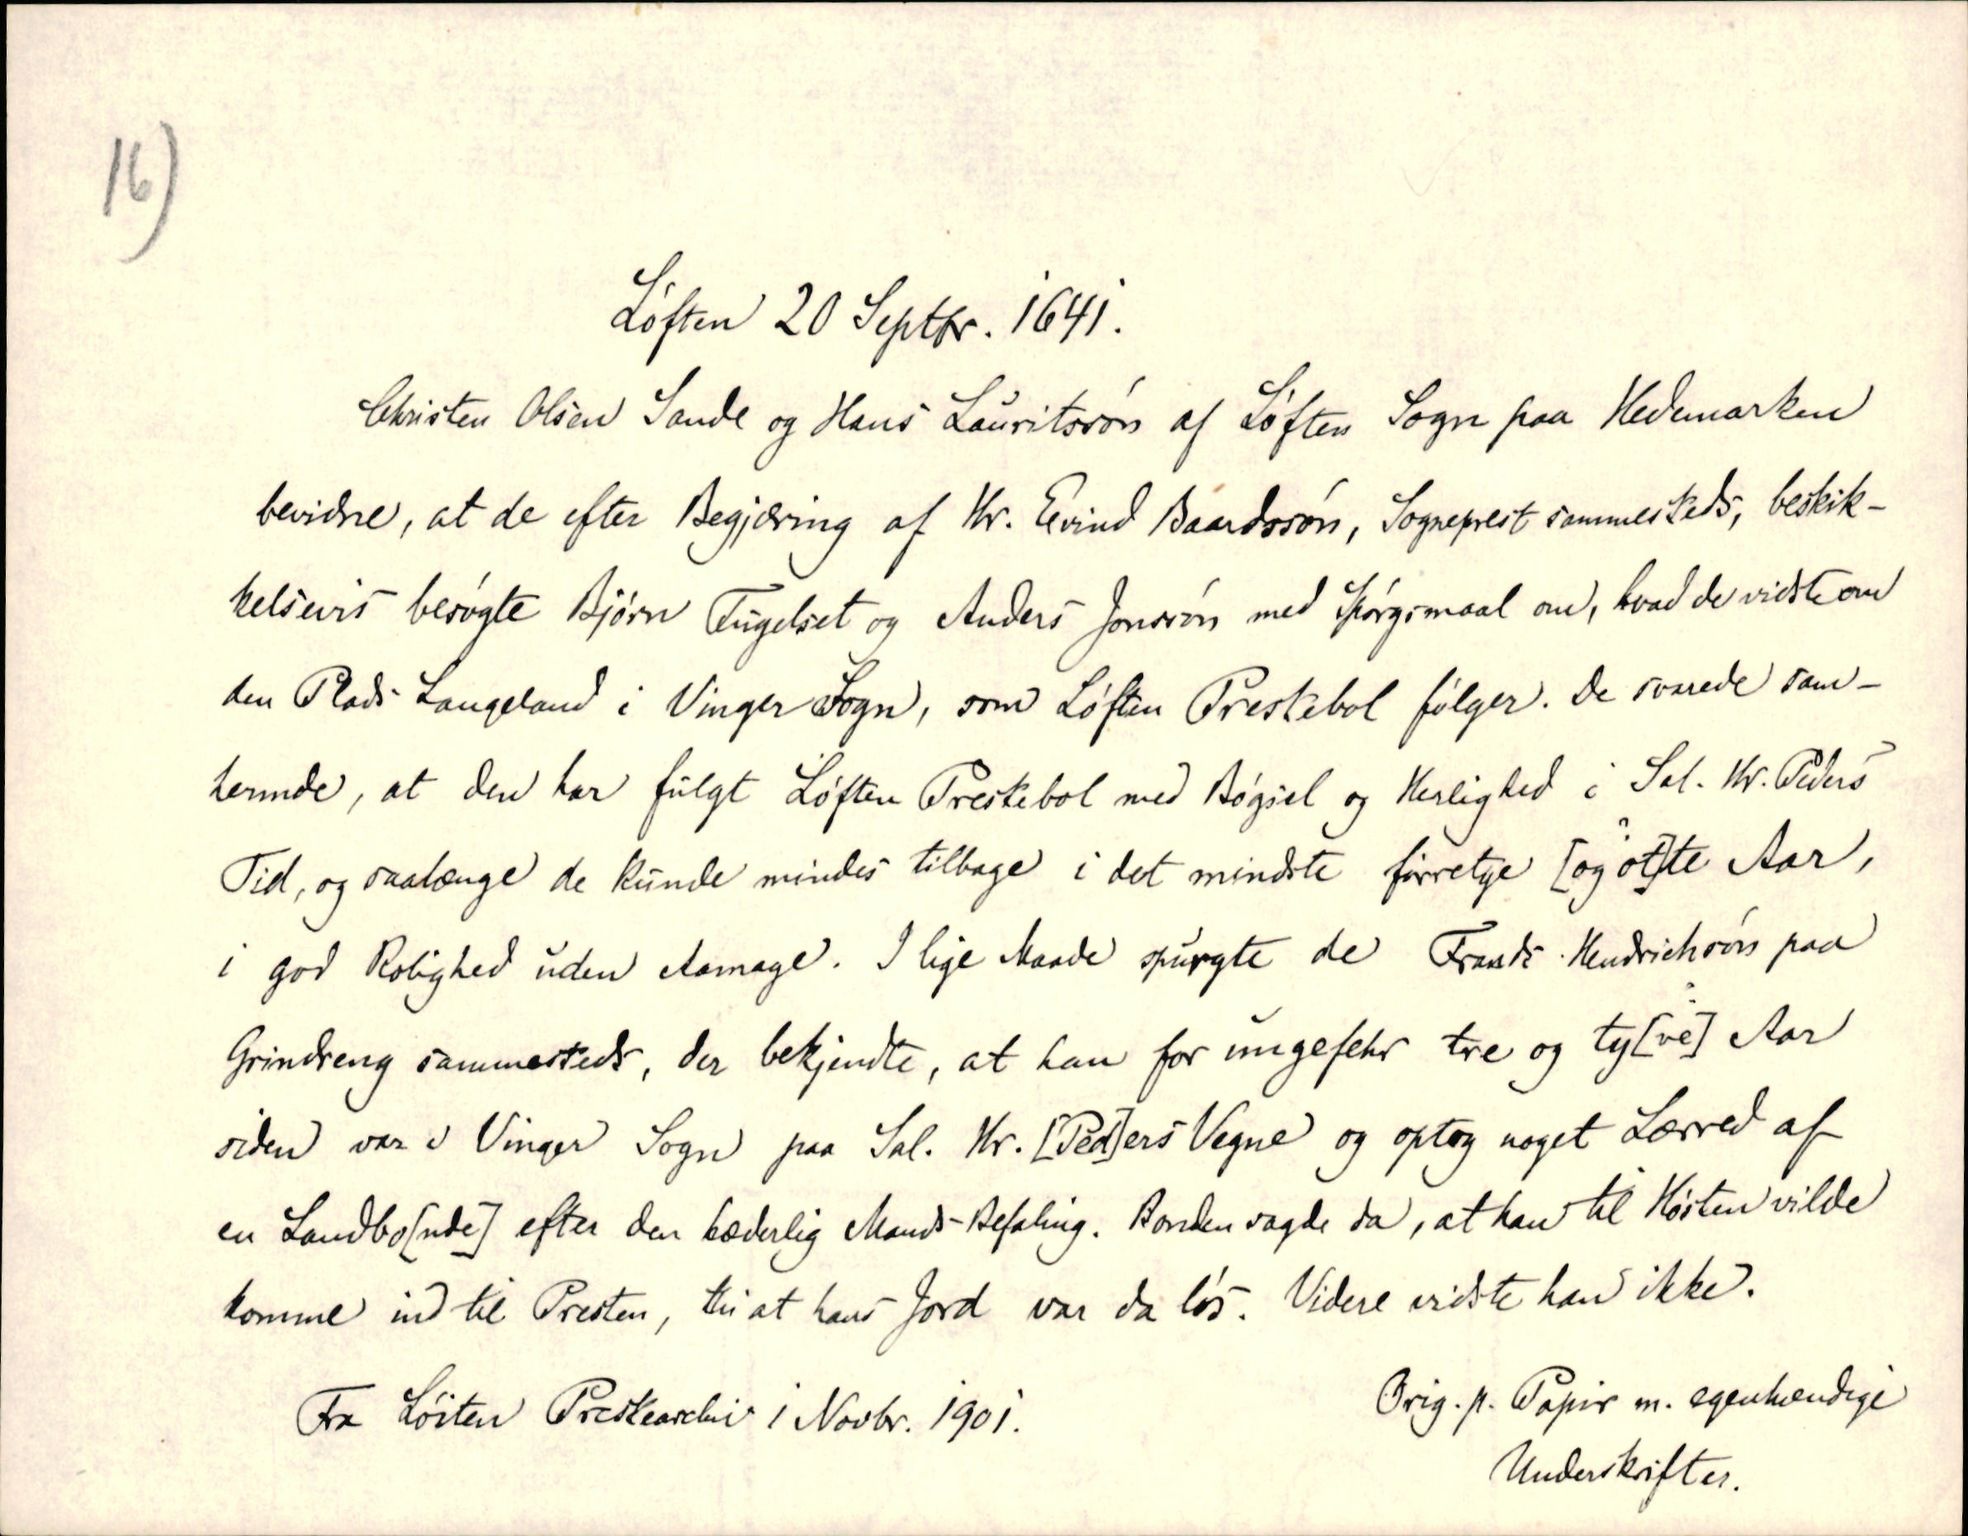 16)
Løften 20 Septbr. 1641.
Christen Olsen Sande og Hans Lauritssøn af Løften Sogn paa Hedemarken
bevidne, at de efter Begjæring af Hr. Eivind Baardssøn, Sogneprest sammesteds, beskik-
kelsevis besøgte Bjørn Fugelset og Anders Jonssøn med Spørgsmaal om, hvad de vidste om
den Plads Langeland i Vinger Sogn, som Løften Prestebol følger. De svarede sam-
hernde, at den har fulgt Løften Prestebol med Bøgsel og Herlighed i Sal. Hr. Peders
Tid, og saalænge de kunde mindes tilbage i det mindste førretye [og ot]te Aar,
i god Rolighed uden Aamage. I lige Maade spurgte de Frands Hendrichsøn paa
Grindreng sammesteds, der bekjendte, at han for ungefehr tre og ty[ve] Aar
siden var i Vinger Sogn paa Sal. Hr. [Ped]ers Vegne og optog noget Lærred af
en Landbo[nde] efter den hæderlig Mands Befaling. Bonden sagde da, at han til Høsten vilde
komme ind til Presten, thi at hans Jord var da løs. Videre vidste han ikke.
Fra Løiten Prestearchiv i Novbr. 1901.
Orig. p. Papir m. egenhændige
Underskrifter.